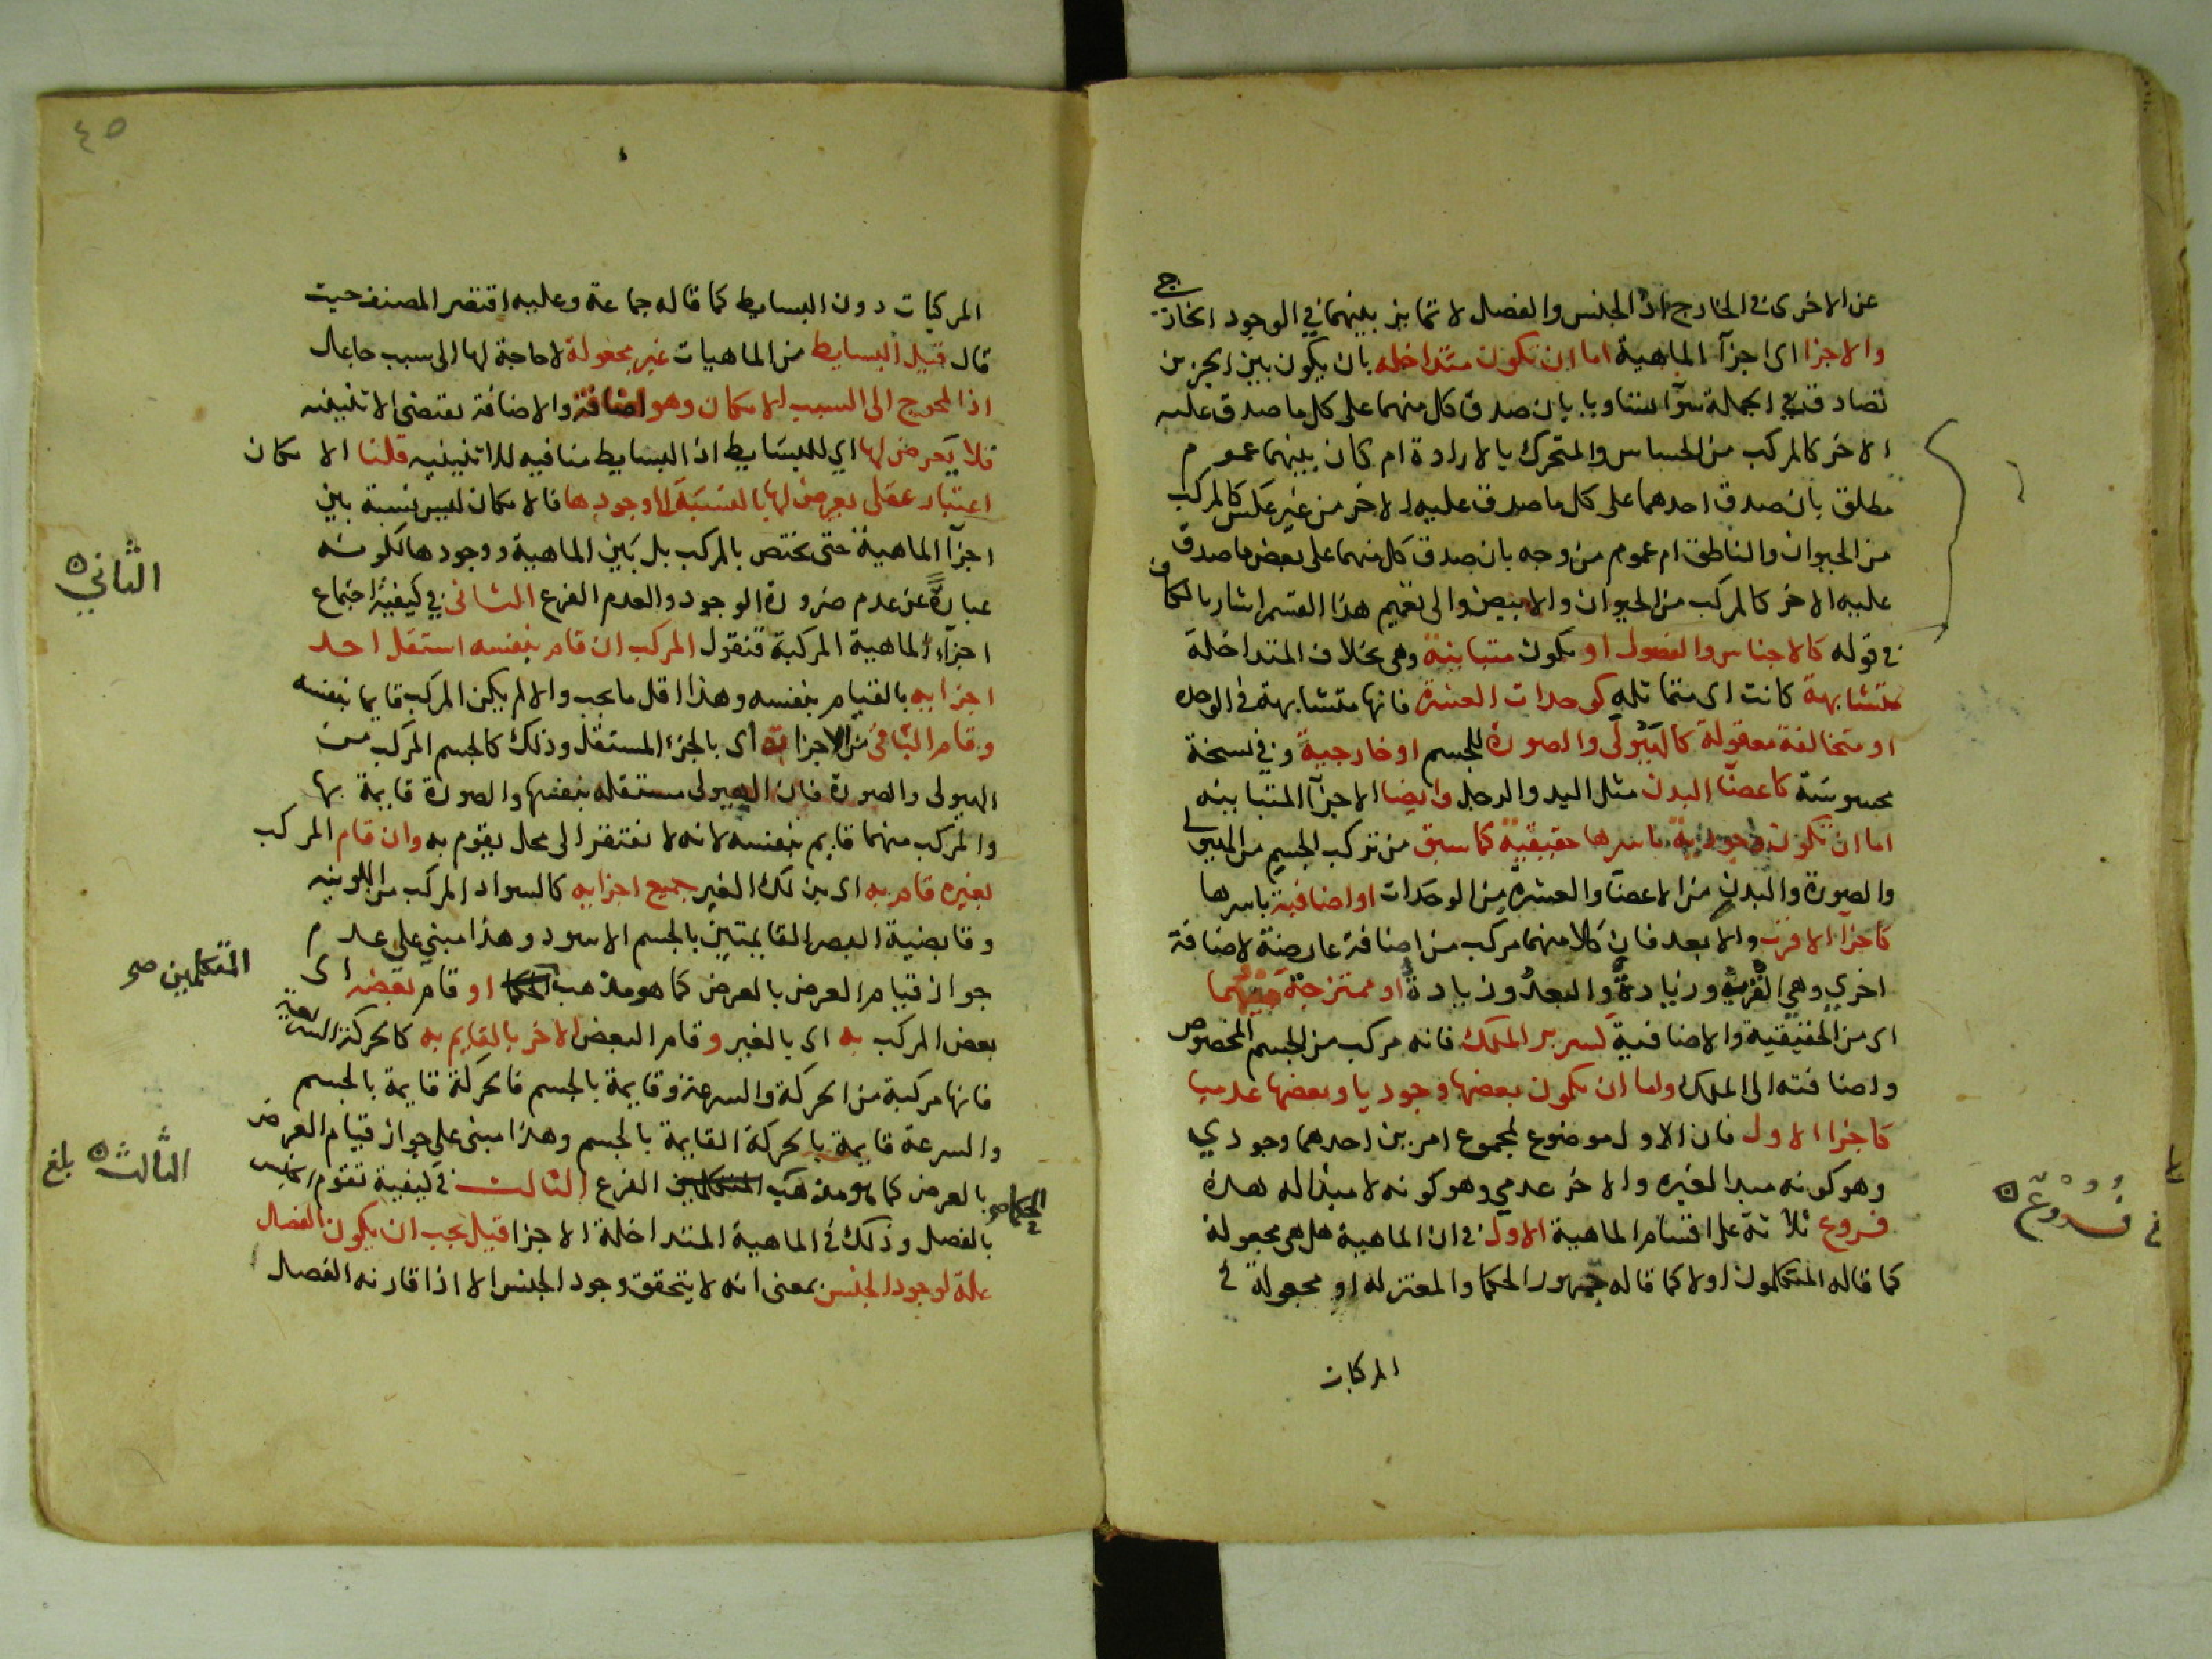 عن الاخرى في الخارج اذ الجنس والفصل لا تمايز بينهما في الوجود الخارجي
والاجزا اى اجزآ الماهية اما ان تكون متداخله بان يكون بين الجزين
تصادق في الجملة سوآ تساويا بان صدق كل منهما على كل ما صدق عليه
الاخر كالمركب من الحساس والمتحرك بالارادة ام كان بينهما عموم
مطلق بان صدق احدهما على كل ما صدق عليه الاخر من غير عكس كالمركب
من الحيوان والناطق ام عموم من وجه بان صدق كل منهما على بعض ما صدق
عليه الاخر كالمركب من الحيوان والابيض والى تعميم هذا القسم اشار بالكاف
في قوله كالاجناس والفصول او تكون متباينة وهى بخلاف المتداخلة
متشابهة كانت اى متماثله كوحدات العشرة فانها متشابهة في الوحده
او متخالفة معقولة كالهيولى والصورة للجسم او خارجية وفي نسخة
محسوسة كاعضآ البدن مثل اليد والرجل وايضا الاجزآ المتباينه
اما ان تكون وجودية باسرها حقيقية كما سبق من تركب الجسم من الهيولى
والصورة والبدن من الاعضآ والعشرة من الوحدات او اضافية باسرها
كاجزآ الاقرب والابعد فان كلا منهما مركب من اضافة عارضة لاضافة
اخري وهي القرب وزيادة والبعد وزيادة او ممتزجة منهما
اى من الحقيقية والاضافية كسرير الملك فانه مركب من الجسم المخصوص
واضافته الى الملك واما ان تكون بعضها وجوديا وبعضها عدميا
كاجزا الاول فان الاول موضوع لمجموع امرين احدهما وجودي
وهو كونه مبدا لغيره والاخر عدمي وهو كونه لا مبدا له هذه
فروع ثلاثة على اقسام الماهية الاول في ان الماهية هل هى مجعولة
كما قاله المتكلمون اولا كما قاله جمهور الحكما والمعتزله او مجعولة في
المركبات
فروع
٤٥
المركبات دون البسايط كما قاله جماعة وعليه اقتصر المصنف حيث
قال قيل البسايط من الماهيات غير مجعولة لا حاجة لها الى سبب جاعل
اذ المحوج الى السبب الامكان وهو اضافة والاضافة تقتضى الاثنينيه
فلا يعرض لها اي للبسايط اذ البسايط منافيه للاثنينيه قلنا الامكان
اعتبار عقلى يعرض لها بالنسبة الى وجودها فالامكان ليس نسبة بين
اجزآ الماهية حتى يختص بالمركب بل بين الماهية ووجودها لكونه
عبارة عن عدم ضرورة الوجود والعدم الفرع الثانى في كيفية اجتماع
اجزآء الماهية المركبة فنقول المركب ان قام بنفسه استقل احد
اجزايه بالقيام بنفسه وهذا اقل ما يجب والا لم يكن المركب قايما بنفسه
وقام الباقى من الاجزا به اى بالجزء المستقل وذلك كالجسم المركب من
الهيولى والصورة فان الهيولى مستقله بنفسها والصورة قايمة بها
والمركب منهما قايم بنفسه لانه لا تفتقر الى محل يقوم به وان قام المركب
بغيره قام به اى بذلك الغير جميع اجزايه كالسواد المركب من اللونيه
وقابضية البصر القايمتين بالجسم الاسود وهذا مبني على عدم
جواز قيام العرض بالعرض كما هو مذهب الحكما او قام بعضه اى
بعض المركب به اى بالغير وقام البعض الاخر بالقايم به كالحركة السريعة
فانها مركبة من الحركة والسرعة وقايمة بالجسم فالحركة قايمة بالجسم
والسرعة قايمة بالحركة القايمة بالجسم وهذا مبنى على جواز قيام العرض
بالعرض كما هو مذهب المتكلمين الفرع الثالث في كيفية تقوم الجنس
بالفصل وذلك في الماهية المتداخلة الاجزا قيل يجب ان يكون الفصل
علة لوجود الجنس بمعنى انه لا يتحقق وجود الجنس الا اذا قارنه الفصل
الثاني
المتكلمين صح
الحكما صح
الثالث بلغ